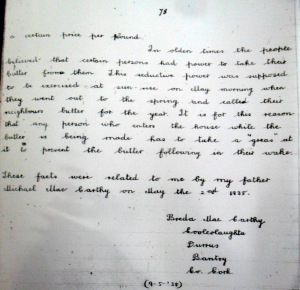 78
a certain price per pound.
In olden times the people
believed that certain persons had power to take their
butter from them. This seductive power was supposed
to be exercised at sun-rise on May morning when
they went out to the spring and called their
neighbours butter for the year. It is for this reason
that any person who enters the house while the
butter is being made has to take a greas at
it to prevent the butter following in their wake.
These facts were related to me by my father
Michael Mac Carthy on May the 2nd 1935.
Breda Mac Carthy
Coolcolaughta
Durrus
Bantry
Co. Cork.
(9-5-'38)